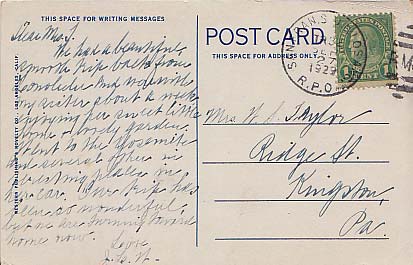 THIS SPACE FOR WRITING MESSAGES
Dear Mrs. T.
We had a beautiful
smooth trip back from
Honolulu. And was with
my sister about a week
enjoying her sweet little
home & lovely garden.
Went to the Yosemite
and several other in
teresting places in
her car. Our trip has
been so wonderful
but we are turning toward
home now.
Love
POST CARD
THIS SPACE FOR ADDRESS ONLY
SEP
27
1929
R.P.O.
1 CENT
Mrs. W. S. Taylor
Ridge St.
Kingston,
Pa.